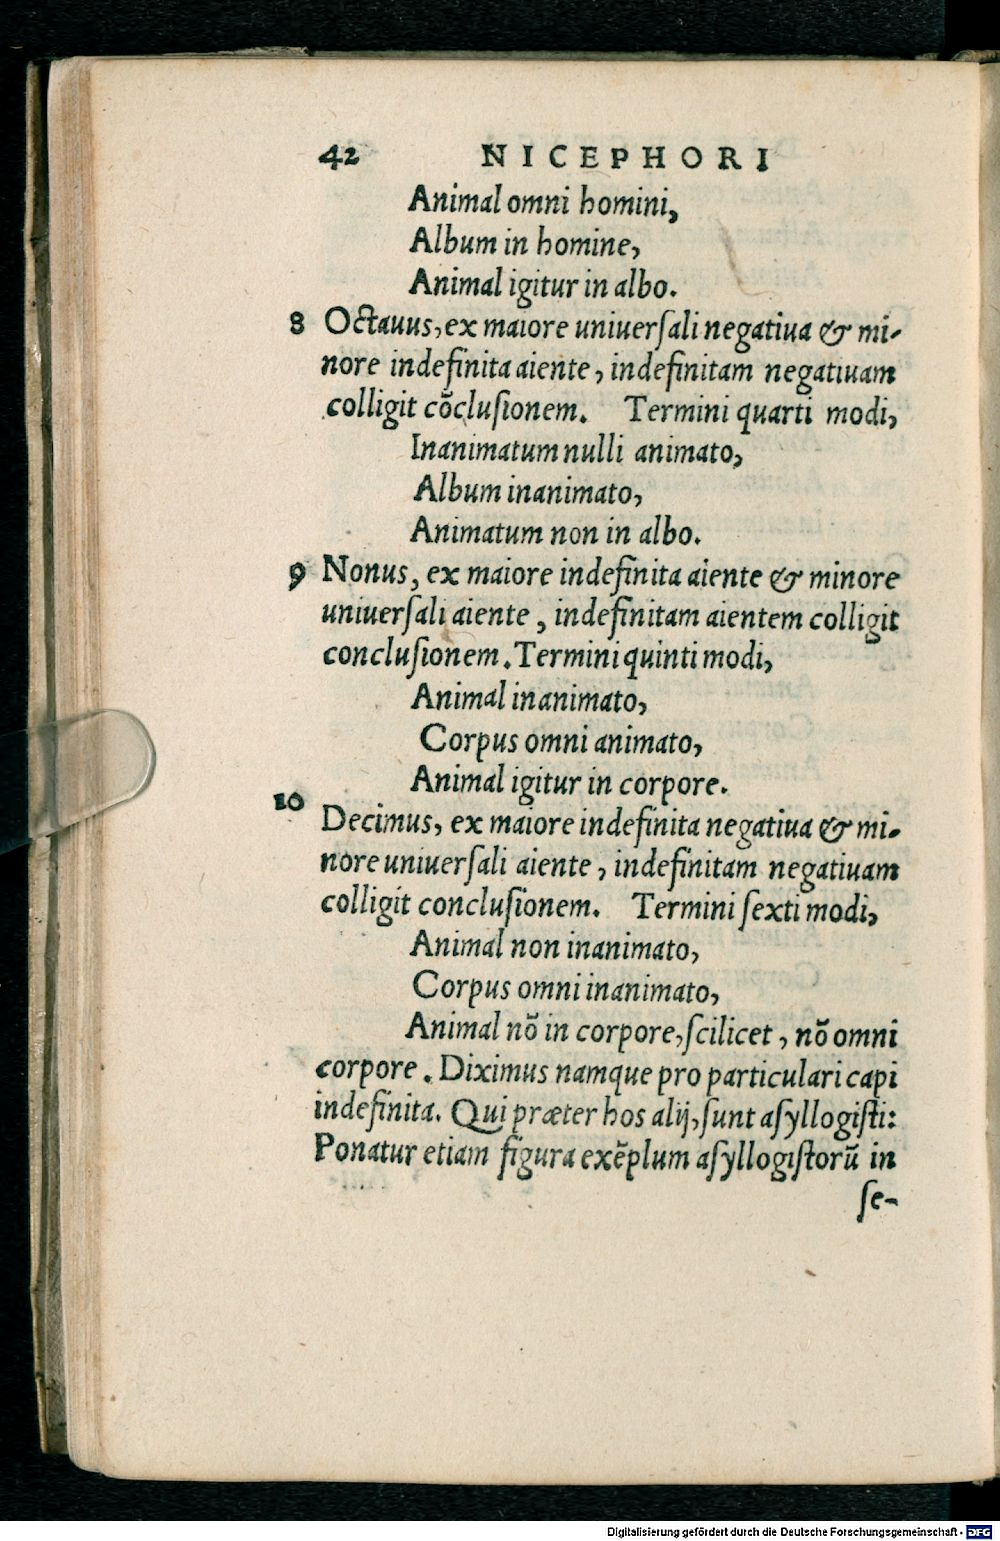 42 NICEPHORI
Animal omni homini,
Album in homine,
Animal igitur in albo.
8 Octauus, ex maiore uniuerſali negatiua & mi-
nore indefinita aiente, indefinitam negatiuam
colligit cōcluſionem. Termini quarti modi,
Inanimatum nulli animato,
Album inanimato,
Animatum non in albo.
9 Nonus, ex maiore indefinita aiente & minore
uniuerſali aiente, indefinitam aientem colligit
concluſionem. Termini quinti modi,
Animal inanimato,
Corpus omni animato,
Animal igitur in corpore.
10 Decimus, ex maiore indefinita negatiua & mi-
nore uniuerſali aiente, indefinitam negatiuam
colligit concluſionem. Termini ſexti modi,
Animal non inanimato,
Corpus omni inanimato,
Animal nō in corpore, ſcilicet, nō omni
corpore. Diximus namque pro particulari capi
indefinita. Qui præter hos alij, ſunt aſyllogiſti:
Ponatur etiam figura exēplum aſyllogiſtorū in
ſe-
Digitalisierung gefördert durch die Deutsche Forschungsgemeinschaft - DFG